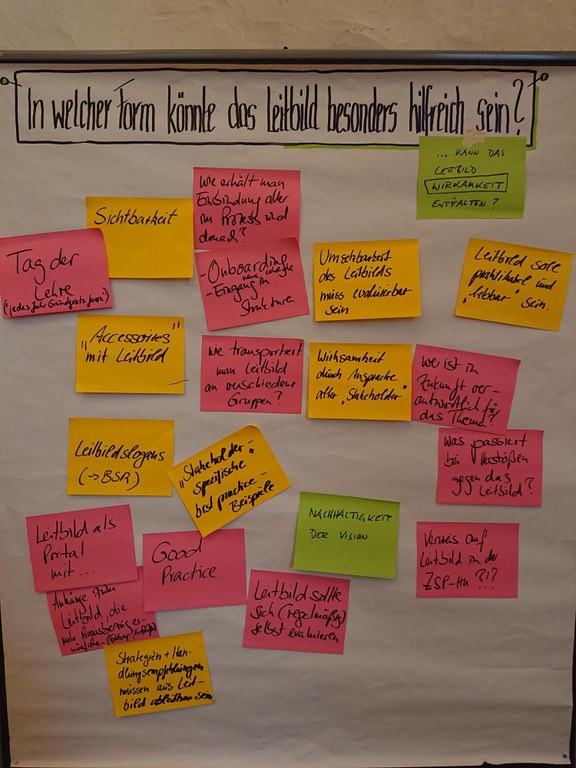 In welcher Form könnte das Leitbild besonders hilfreich sein?
... KANN DAS
LEITBILD
WIRKAMKEIT
ENTFALTEN?
Wie erhält man
Einbindung aller
im Prozess und
danach?
Sichtbarkeit
Tag der
Lehre
- Onboarding
- Eingang in
Strukturen
Umsetzbarkeit
des Leitbilds
muss evaluierbar
sein
Leitbild solle
praktikabel und
lebbar sein.
"Accessoires"
mit Leitbild
Wie transportiert
man Leitbild
an verschiedene
Gruppen?
Wirksamkeit
durch Ansprache
aller "Stakeholder"
Wer ist in
Zukunft ver-
antwortlich für
das Thema?
Leitbildslogans
(→ BSR)
"Stakeholder"-
spezifische
best practice-
Beispiele
Was passiert
bei Verstößen
gegen das
Leitbild?
NACHHALTIGKEIT
DER VISION
Leitbild als
Portal
mit ...
Good
Practice
Verweis auf
Leitbild in der
ZSP-HU ?!?
Leitbild sollte
sich (regelmäßig)
selbst evaluieren
Leitbild, die
Strategien + Han-
dlungsempfehlungen
müssen aus Leit-
bild ableitbar sein